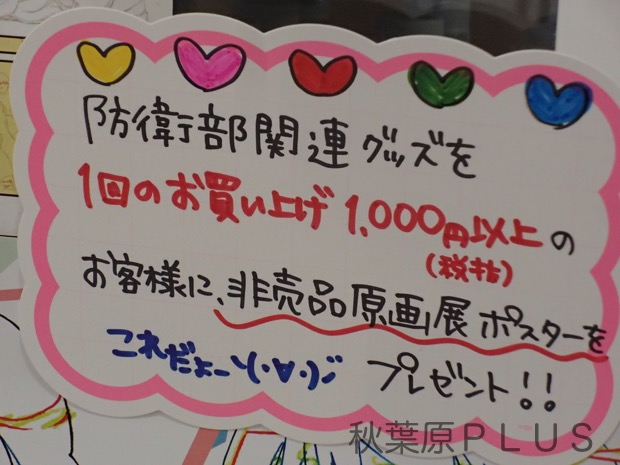 防衛部関連グッズを
1回のお買い上げ1,000円以上の
(税抜)
お客様に、非売品原画展ポスターを
これだよーヽ(・∀・)ノ プレゼント!!
秋葉原PLUS